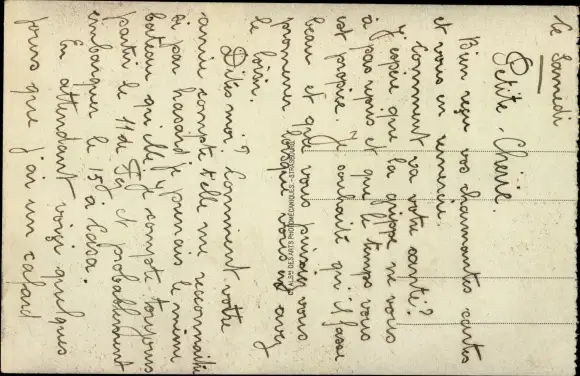 le Samedi
Petite Chérie.
Bien reçu vos charmantes cartes
et vous en remercie.
Comment va votre santé?
J'espère que la grippe ne vous
à pas repris et que le temps vous
est propice. Je souhaite qu'il fasse
beau et que vous puissiez vous
promener lorsque vous en avez
le loisir.
Dites moi? Comment votre
amie compte t'elle me reconnaitre
si par hasard je prenais le même
bateau qu'elle? Je compte toujours
partir le 11 de Fez et probablement
embarquer le 15 à Casa.
En attendant voici quelques
jours que j'ai un cafard
DES ARTS PHOTOMÉCANIQUES - STRASBOURG